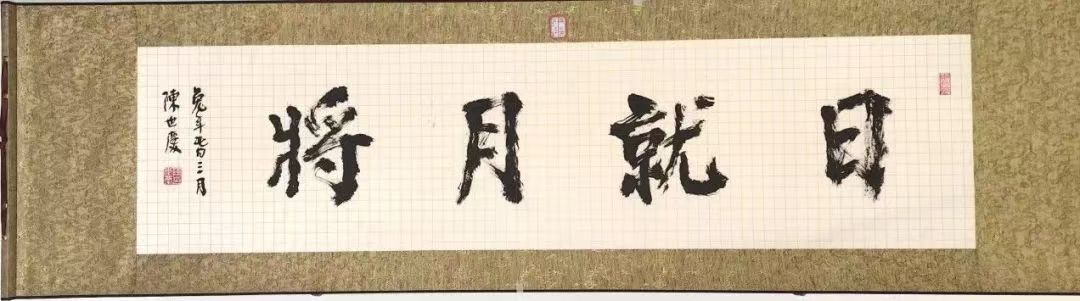 日就月將
兔年旾三月
陳世慶